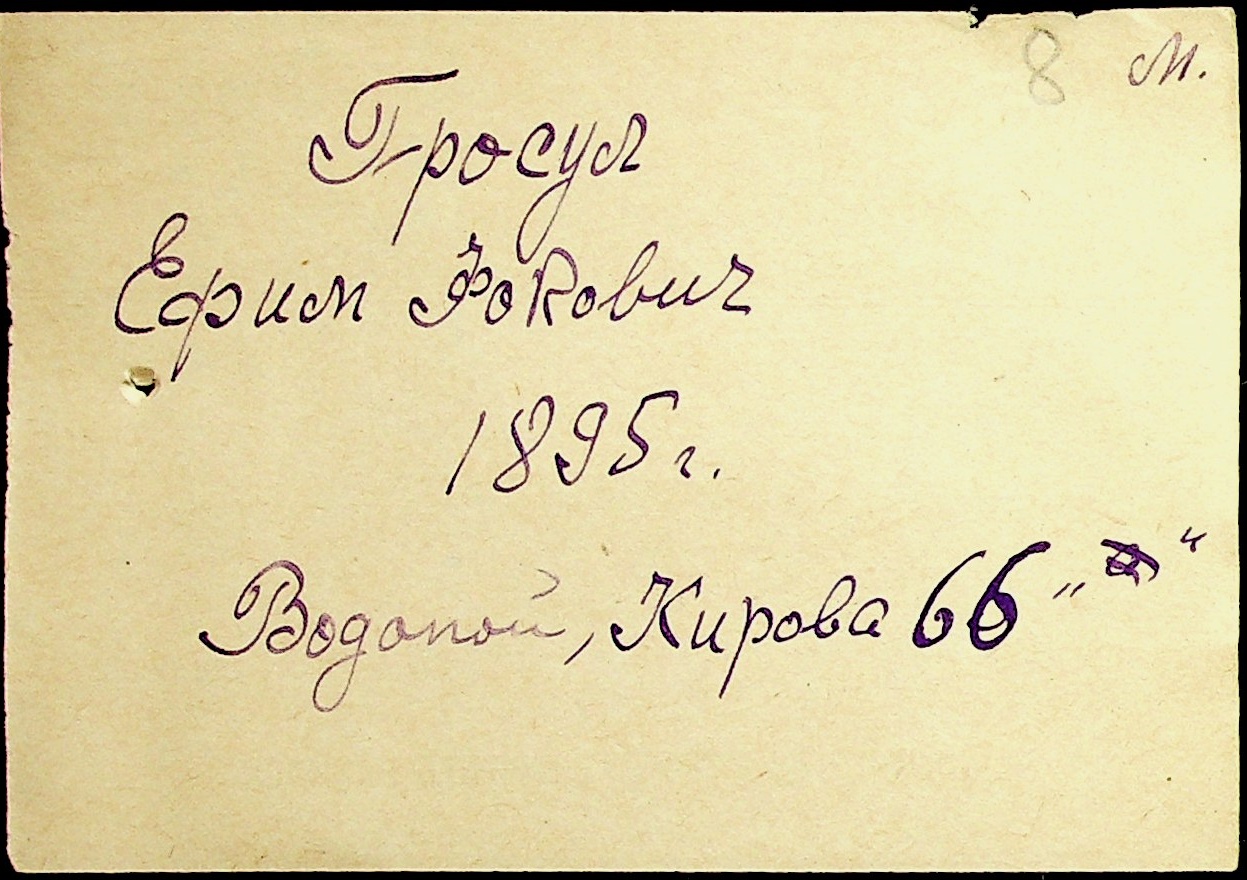 8 М.
Гросул
Ефим Фокович
1895 г.
Водопой, Кирова 66 " "